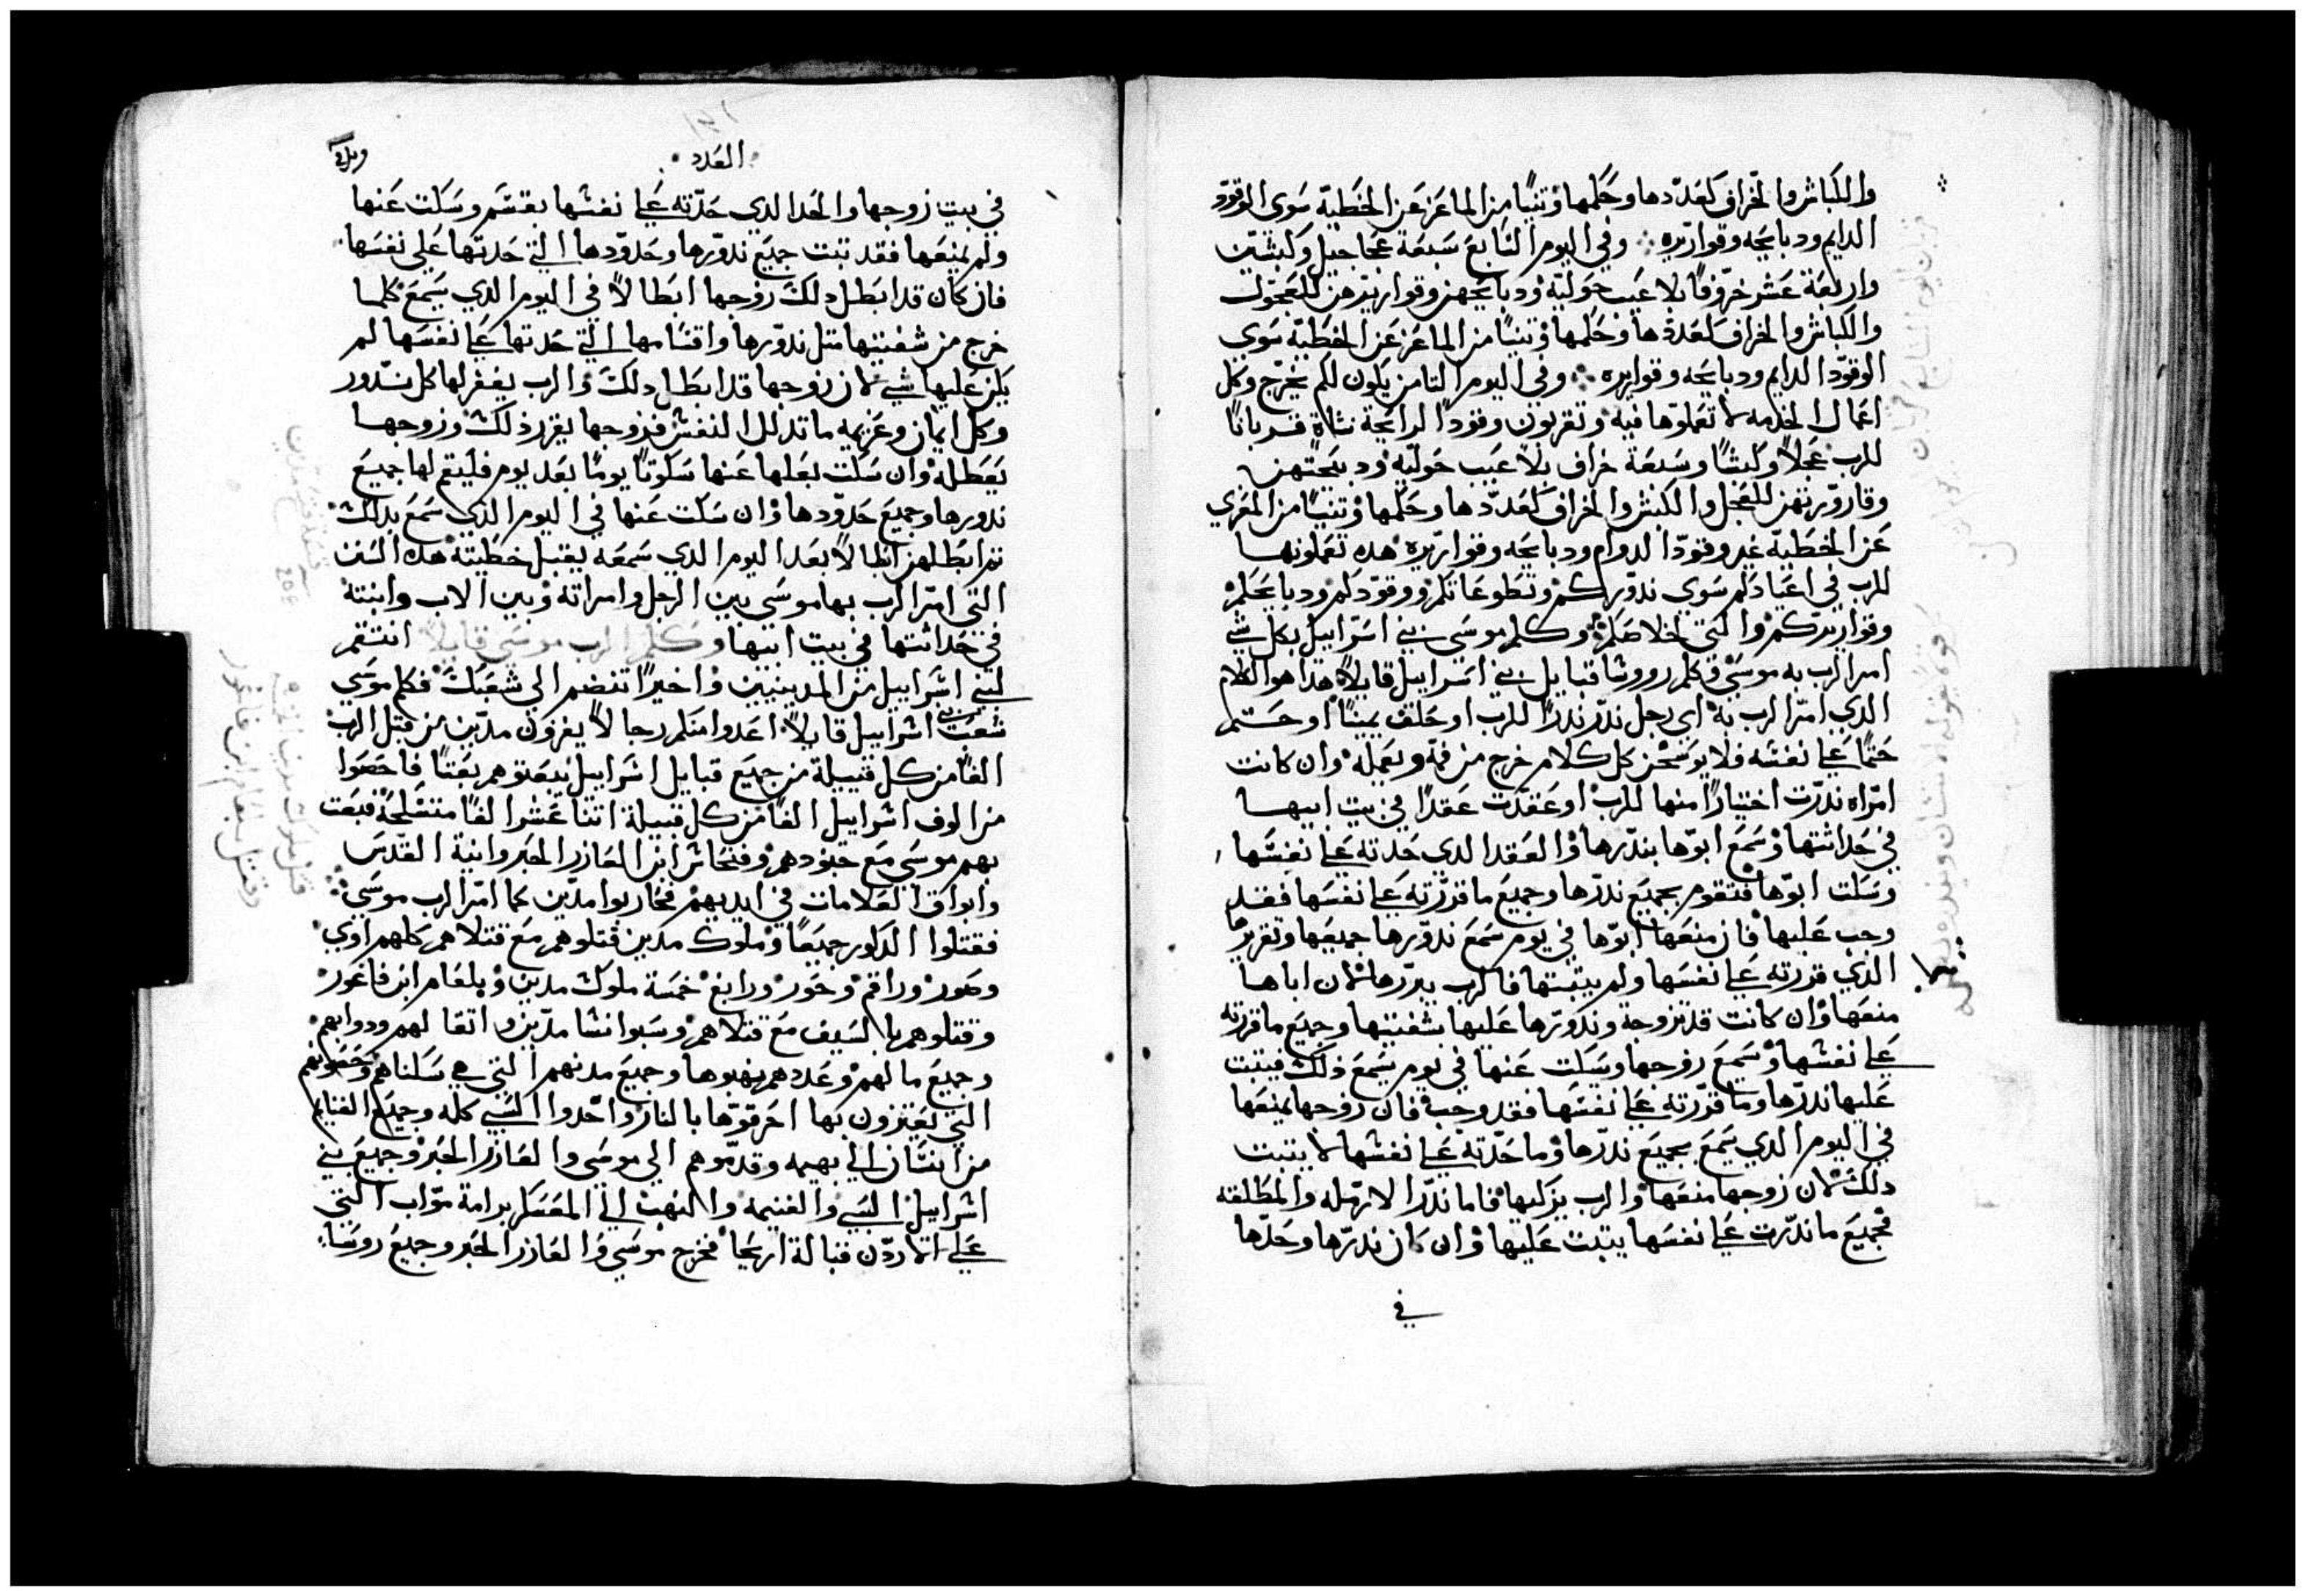 والكباش والخراف كعددها وحكمها وتنيًا من الماعز عن الخطية سوى الوقود
الدايم ودبايحه وقواريره ؞ وفي اليوم السابع سبعة عجاجيل وكبشين
واربعة عشر خروفًا بلا عيب حولية ودبايحهن وقواريرهن للعجول
والكباش والخراف كعددها وحكمها وتنيًا من الماعز عن الخطية سوى
الوقود الدايم ودبايحه وقواريره ؞ وفي اليوم التامن يكون لكم تخرج وكل
اعمال الخدمه لا تعملوها فيه وتقربون وقودًا لرايحة نشاة قربانًا
للرب عجلًا وكبشًا وسبعة خراف بلا عيب حوليه ودبيحتهن
وقارورتهن للعجل والكبش والخراف كعددها وحكمها وتنيًا من المعزي
عن الخطية غير وقود الدوام ودبايحه وقواريره هده تعملونها
للرب في اعيادكم سوى ندوركم وتطوعاتكم ووقودكم ودبايحكم
وقواريركم والتي لخلاصكم وكلم موسى بني اسراييل بكل شي
امر الرب به موسى وكلم رووسا قبايل بني اسراييل قايلًا هدا هو الكلام
الدي امر الرب به اي رجل ندر ندرًا للرب او حلف يمينًا او حتم
حتمًا على نفسه فلا يوسخن كل كلام خرج من فمه ويعمله وان كانت
امراه ندرت اختيارًا منها للرب او عقدت عقدًا في بيت ابيها
في حداثتها وسمع ابوها بندرها والعقد الدي حدته على نفسها
وسكت ابوها فتقوم بجميع ندرها وجميع ما قررته على نفسها فقد
وجب عليها فان منعها ابوها في يوم سمع ندورها جميعها وتقريرها
الدي قررته على نفسها ولم يتبتها فالرب يبررها لان اباها
منعها وان كانت قد تزوجة وندورها عليها بشفتيها وجميع ما قررته
على نفسها وسمع زوجها وسكت عنها في يوم يسمع ذلك فيتبت
عليها ندرها وما قررته على نفسها فقد وجب فان زوجها يمنعها
في اليوم الدي يسمع بجميع ندرها وما حدته على نفسها لا يتبت
دلك لان زوجها منعها والرب يزكيها فاما ندر الارمله والمطلقه
فجميع ما ندرت على نفسها يتبت عليها وان كان ندرها وحدها
في
العدد
في بيت زوجها والحد الدي حدته على نفسها بقسم وسكت عنها
ولم يمنعها فقد تبت جميع ندورها وحدودها التي حدتها على نفسها
فان كان قد ابطل دلك زوجها ابطالًا في اليوم الدي سمع كلما
خرج من شفتيها متل ندورها واقسامها التي حدتها على نفسها لم
يكن عليها شي لان زوجها قد ابطل دلك والرب يغفر لها كل ندور
وكل ايمان وعزيمه ما تدلل النفس فزوجها يقرر ذلك وزوجها
يعطله وان سكت بعلها عنها سكوتًا يومًا بعد يوم فليقم لها جميع
ندورها وجميع حدودها وان سكت عنها في اليوم الذي سمع بدلك
تم ابطلهن ابطالًا بعد اليوم الدي سمعه يقبل خطيته هده السنن
التي امر الرب بها موسى بين الرجل وامراته وبين الاب وابنته
في حداثتها في بيت ابيها وكلم الرب موسى قايلًا انتقم
لبني اشراييل من المدينيين واخيرًا تنضم الى شعبك فكلم موسى
شعب بني اشراييل قايلًا اعدوا منكم رجالًا يغزون مدين من قبل الرب
الفًا من كل قبيلة من جميع قبايل اشراييل تبعتوهم بعتًا فاحصوا
من الوف اشراييل الفًا من كل قبيلة اتنا عشر الفًا متسلحة فبعت
بهم موسى مع جنودهم وفنحاش ابن العازر الحبر وانية القدس
وابواق العلامات في ايديهم فحاربوا مدين كما امر الرب موسى
فقتلوا الدكور جميعًا وملوك مدين قتلوهم مع قتلاهم كلهم اوي
وصور وراقم وحور ورابع خمسة ملوك مدين وبلعام ابن فاغور
وقتلوهم بالسيف مع قتلاهم وسبوا نسا مدين واتقالهم ودوابهم
وجميع مالهم وعددهم نهبوها وجميع مدنهم التي هي سكناهم وحصونهم
التي يعتزون بها احرقوها بالنار واخدوا السبي كله وجميع الغنايم
من انسان الى بهيمه وقدموهم الى موسى والعازر الحبر وجميع بني
اشراييل السبي والغنيمه والنهب الى المعسكر برامة مواب التي
على الاردن قبالة اريحا فخرج موسى والعازر الحبر وجميع روسا